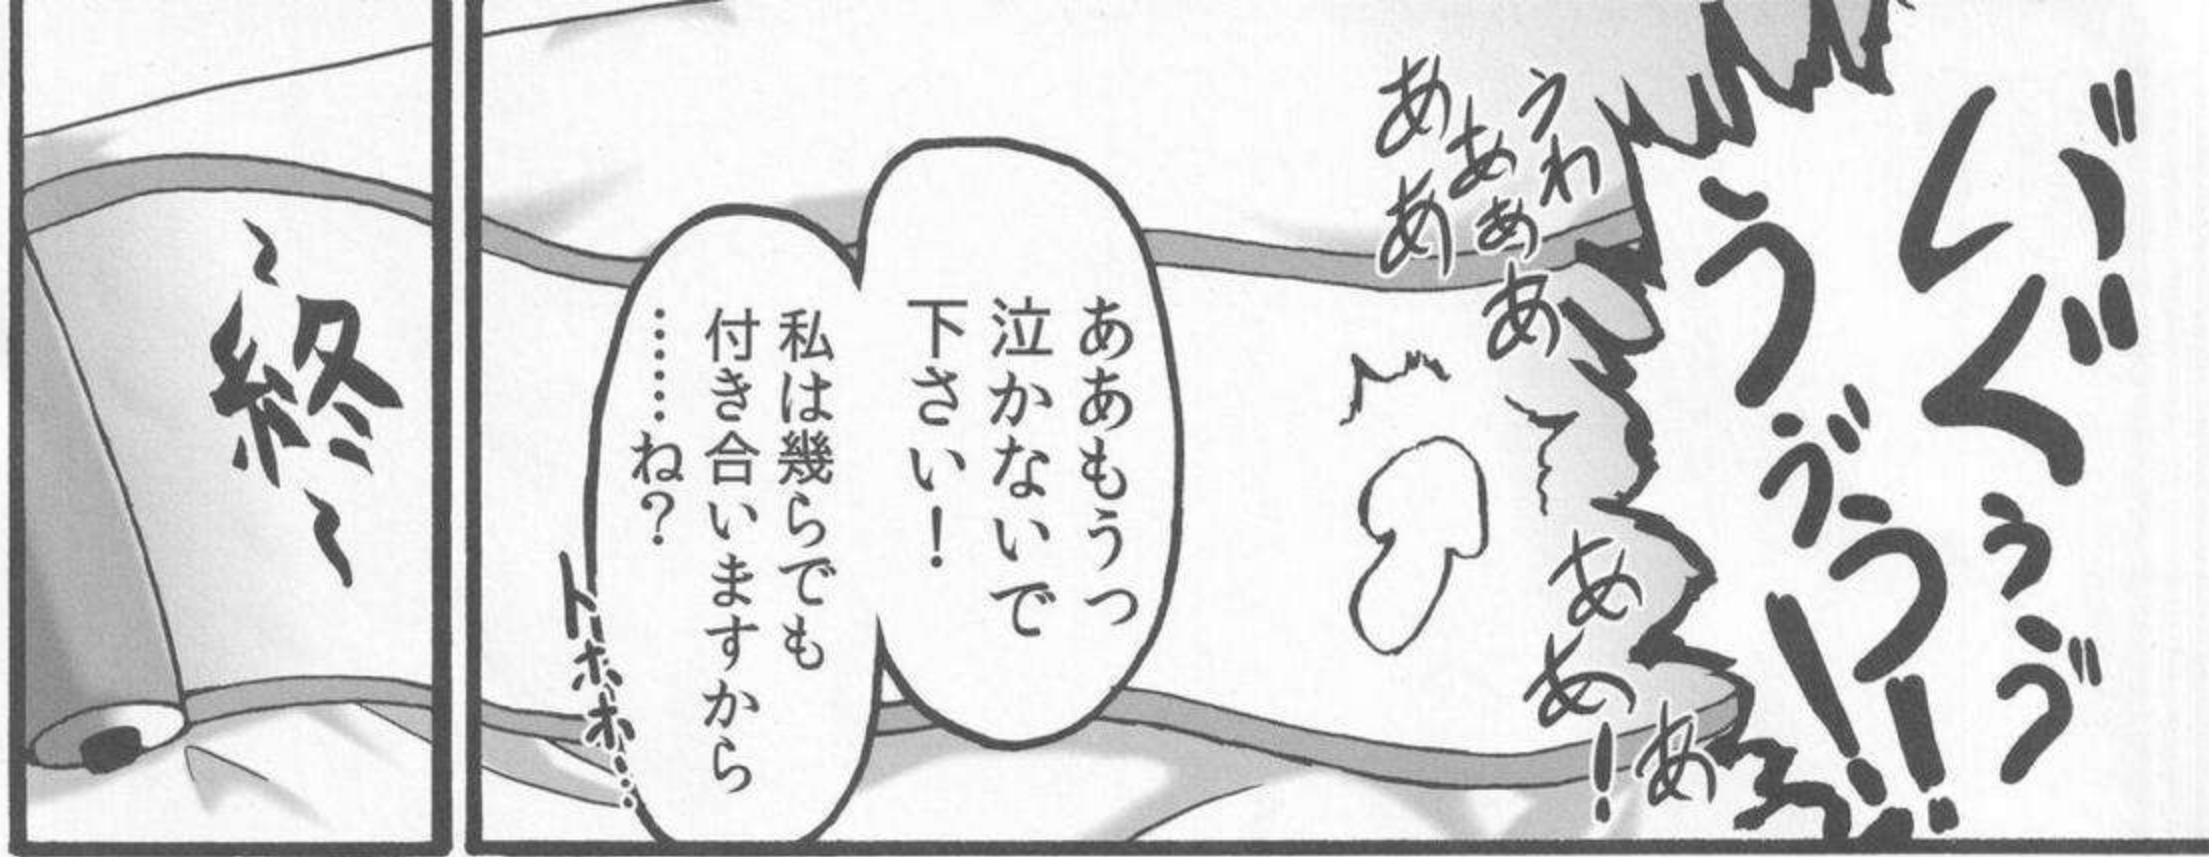 い゛ぐぅぅ゛
うぅ゛う!!
うわ
あああ
ああ
あああ!
ああもうっ
泣かないで
下さい!
私は幾らでも
付き合いますから
……ね?
トホホホ…
〜終〜